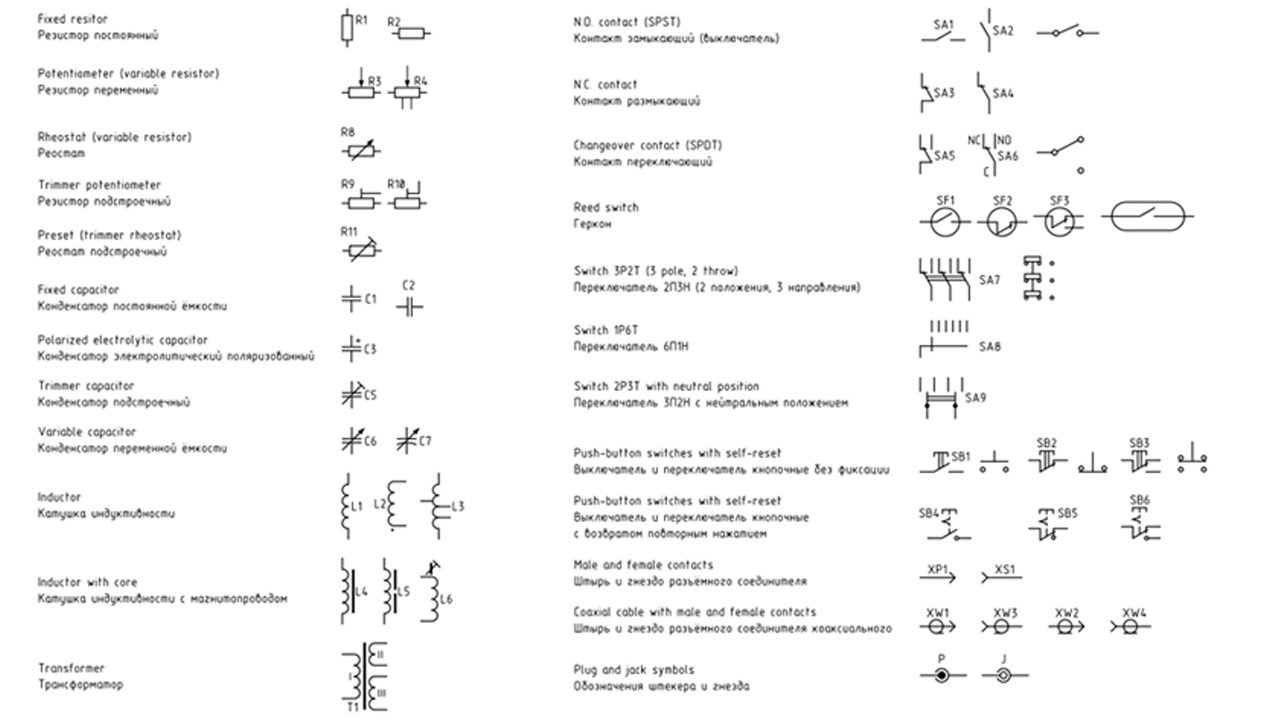 Fixed resitor
Резистор постоянный
R1 R2
Potentiometer (variable resistor)
Резистор переменный
R3 R4
Rheostat (variable resistor)
Реостат
R8
Trimmer potentiometer
Резистор подстроечный
R9 R10
Preset (trimmer rheostat)
Реостат подстроечный
R11
Fixed capacitor
Конденсатор постоянной ёмкости
C1 C2
Polarized electrolytic capacitor
Конденсатор электролитический поляризованный
+ C3
Trimmer capacitor
Конденсатор подстроечный
C5
Variable capacitor
Конденсатор переменной ёмкости
C6 C7
Inductor
Катушка индуктивности
L1 L2 L3
Inductor with core
Катушка индуктивности с магнитопроводом
L4 L5 L6
Transformer
Трансформатор
I II III T1
N.O. contact (SPST)
Контакт замыкающий (выключатель)
SA1 SA2
N.C. contact
Контакт размыкающий
SA3 SA4
Changeover contact (SPDT)
Контакт переключающий
SA5 NC NO SA6 C
Reed switch
Геркон
SF1 SF2 SF3
Switch 3P2T (3 pole, 2 throw)
Переключатель 2П3Н (2 положения, 3 направления)
SA7
Switch 1P6T
Переключатель 6П1Н
SA8
Switch 2P3T with neutral position
Переключатель 3П2Н с нейтральным положением
SA9
Push-button switches with self-reset
Выключатель и переключатель кнопочные без фиксации
SB1 SB2 SB3
Push-button switches with self-reset
Выключатель и переключатель кнопочные
с возвратом повторным нажатием
SB4 SB5 SB6
Male and female contacts
Штырь и гнездо разъёмного соединителя
XP1 XS1
Coaxial cable with male and female contacts
Штырь и гнездо разъёмного соединителя коаксиального
XW1 XW3 XW2 XW4
Plug and jack symbols
Обозначения штекера и гнезда
P J